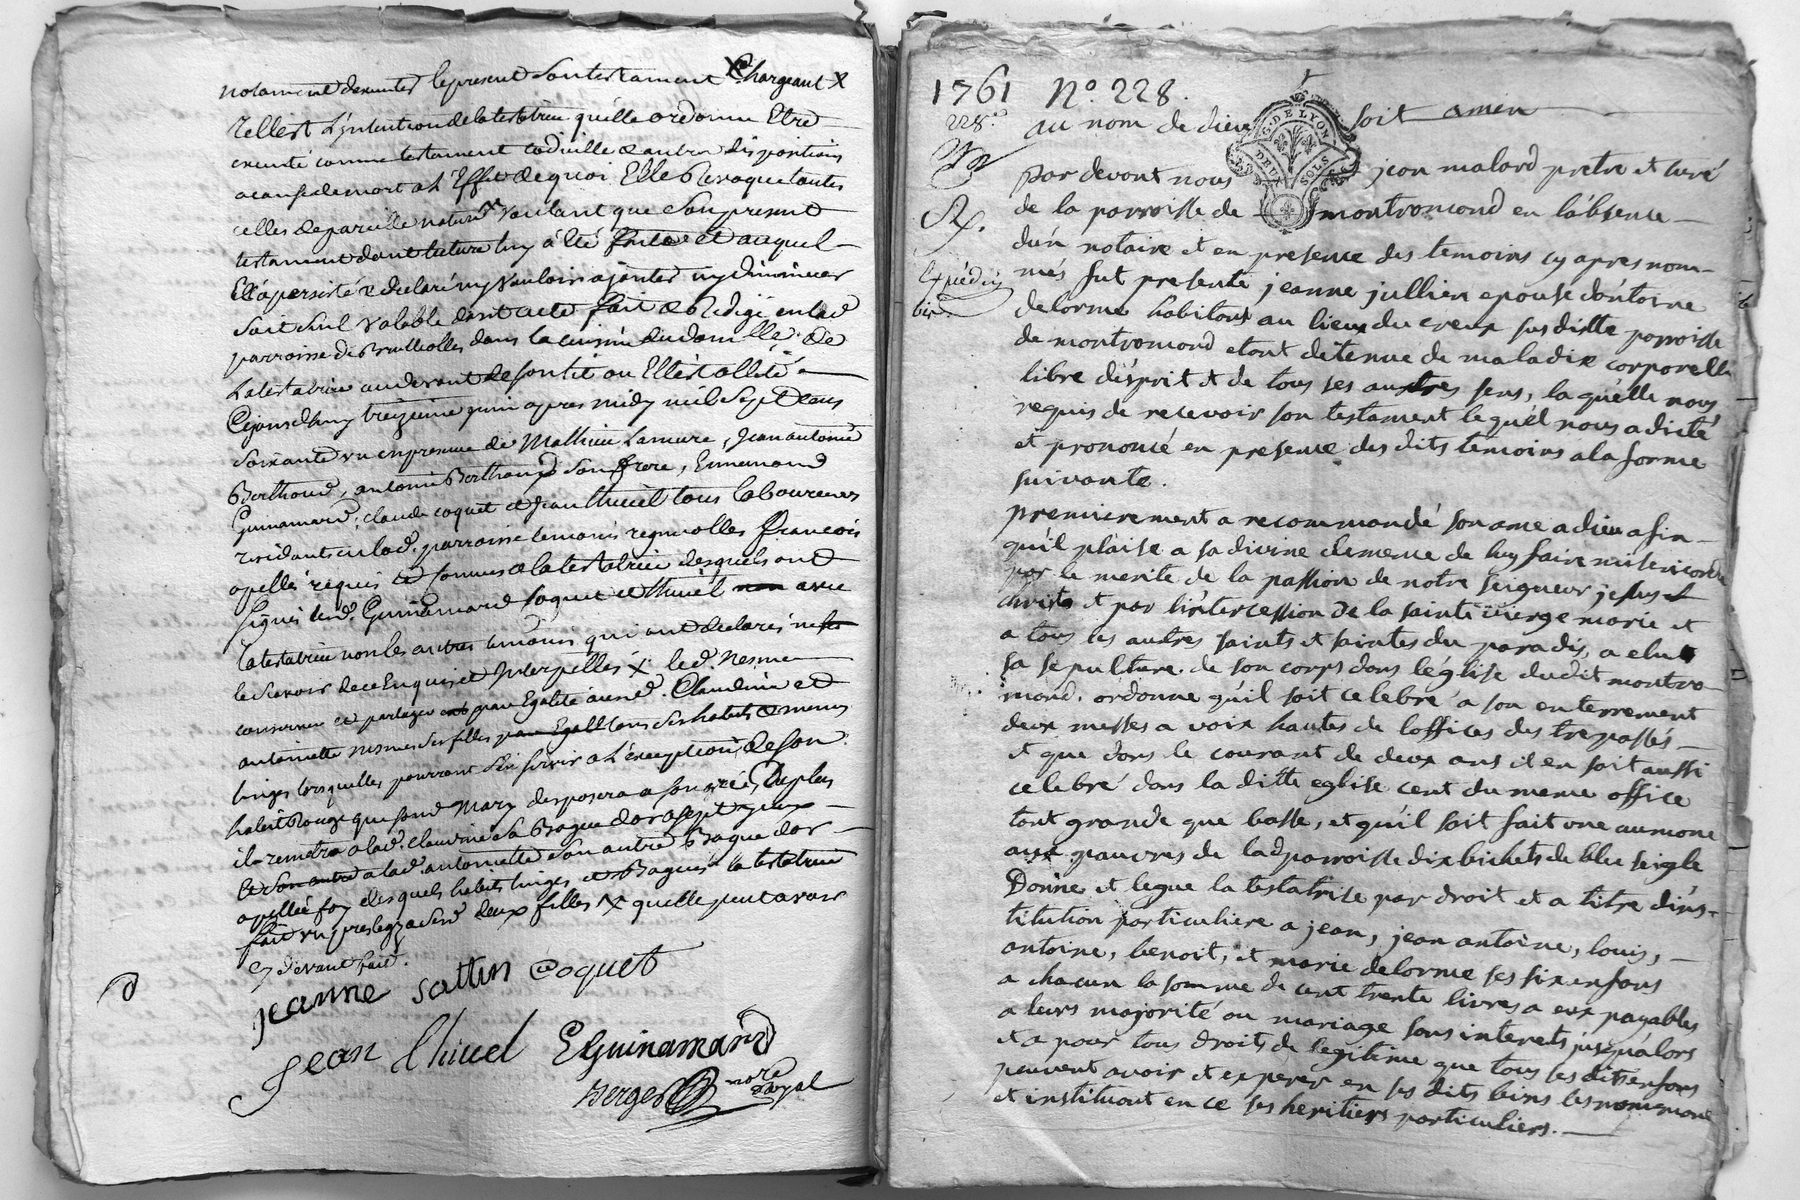 notament d'exmuter le present son testament X Chargeant X
telle est l'intention de la testatrice qu'elle ordonne Etre
executé comme testament codicille & autres dispositions
a cause de mort a l'Effet de quoi Elle Revoque toutes
celles de pareille nature X voulant que son present
testament dont lecture luy a été faite et auquel
Ell'a persisté & declaré ny vouloir ajouter ny diminuer
soit seul valable dont acte fait & Redigé en lad
parroisse de Brullolles dans la cuisine du domlle. de
la testatrice au devant de son lit ou Ell'est allité
Cejourd'huy treizieme juin apres midy mil sept cens
soixante un en presence de Mathieu Lamure, Jean antoine
Berthoud, antoine Berthoud son frere, Ennemond
Guinamard, claude coquet et Jean thivel tous laboureurs
residants en lad. parroisse temoins
apellé requis et connus de la testatrice desquels ont
signés led. Guinamard coquet et thivel avec
la testatrice non les autres temoins qui ont declarés
le scavoir de ce Enquis et Interpellés X led. nesme
conserver et partager par Egalité aux d. Claudine et
antoinette nesme ses filles par Egall tous ses habits & menus
linges lorsquelles pourront s'en servir a l'exception de son
habit Rouge que sond Mary disposera a son gré, De plus
il remettra a lad. claudine sa Bague d'or a sept yeux
et son autre a lad. antoinette son autre Bague d'or
apellée foy desquels habits linges et Bagues la testatrice
fait un prelegz a sesd deux filles X quelle peut avoir
cy devant fait.
jeanne sattin coquet
jean thivel EGuinamard
Berger nore Royal
1761 No. 228.
228.e
au nom de dieu soit amen
G. DE LYON
DEUX SOLS
par devant nous jean malard pretre et curé
de la parroisse de montromand en l'absence
d'un notaire et en presence des temoins cy apres nom-
Expédié
més fut presente jeanne jullien epouse d'antoine
delorme habitant au lieu du creux sus ditte parroisse
de montromand etant detenue de maladie corporelle
libre d'esprit et de tous ses autres sens, la quelle nous
requis de recevoir son testament le quel nous a dicté
et prononcé en presence des dits temoins a la forme
suivante.
premierement a recommandé son ame a dieu afin
qu'il plaise a sa divine clemence de luy faire misericorde
par le merite de la passion de notre seigneur jesus
christ et par l'intercession de la sainte vierge marie et
a tous les autres saints et saintes du paradis, a elu
sa sepulture de son corps dans l'église dudit montro-
mand. ordonne qu'il soit celebré a son enterrement
deux messes a voix hautes de l'offices des trepassés
et que dans le courant de deux ans il en soit aussi
celebré dans la ditte eglise cent du meme office
tant grande que basse, et qu'il soit fait une aumone
aux pauvres de lad parroisse dix bichets de bled seigle
Donne et legue la testatrise par droit et a titre d'ins-
titution particuliere a jean, jean antoine, louis,
antoine, benoit, et marie delorme ses six enfans
a chacun la somme de cent trente livres a eux payables
a leurs majorité ou mariage sans interets jusqu'alors
et a pour tous droits de legitime que tous ses dits enfans
peuvent avoir et esperer en ses dits biens les nommant
et instituant en ce ses heritiers particuliers.